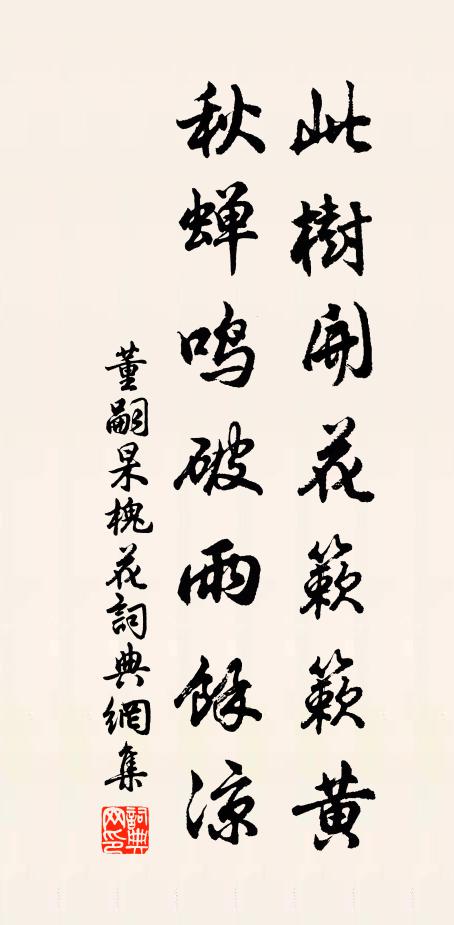 此樹開花簌簌黄
秋蝉鸣破雨餘凉
董嗣杲槐花詞典網集
詞典網印